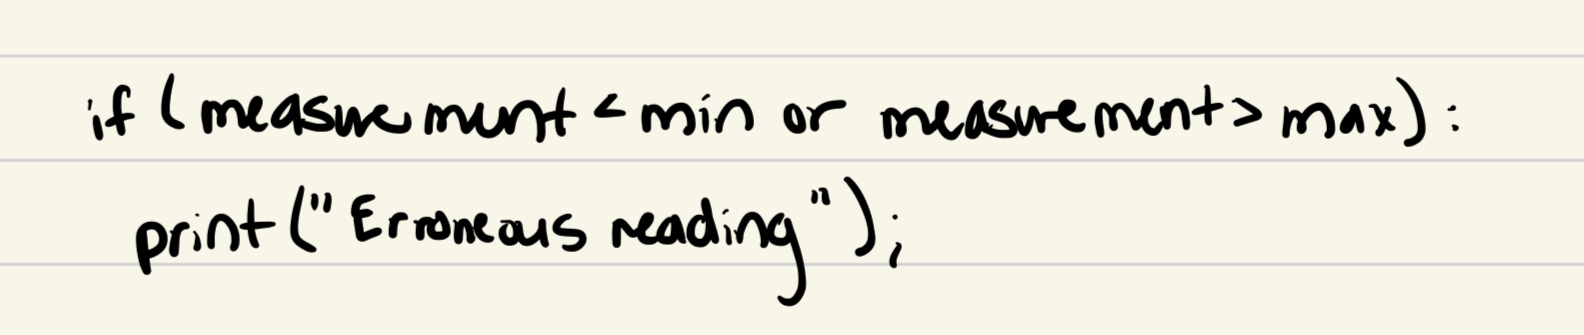 if (measurement < min or measurement > max) :
print ("Erroneous reading");